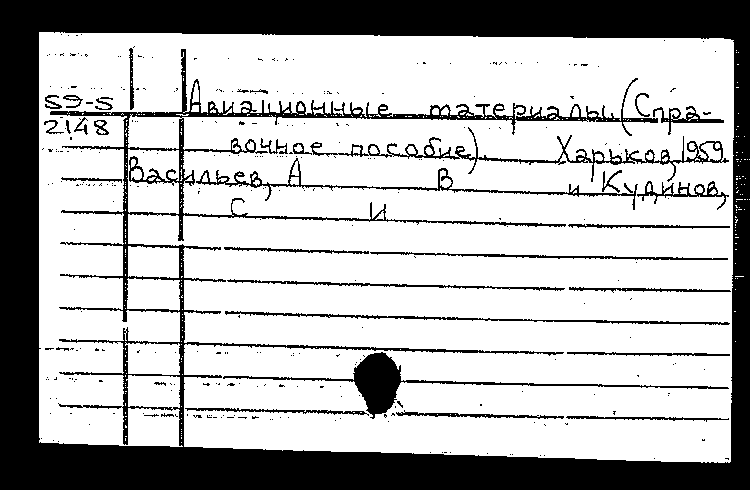 59-5 Авиационные материалы. (Спра-
2148 вочное пособие). Харьков, 1959.
Васильев, А В и Кудинов,
С И